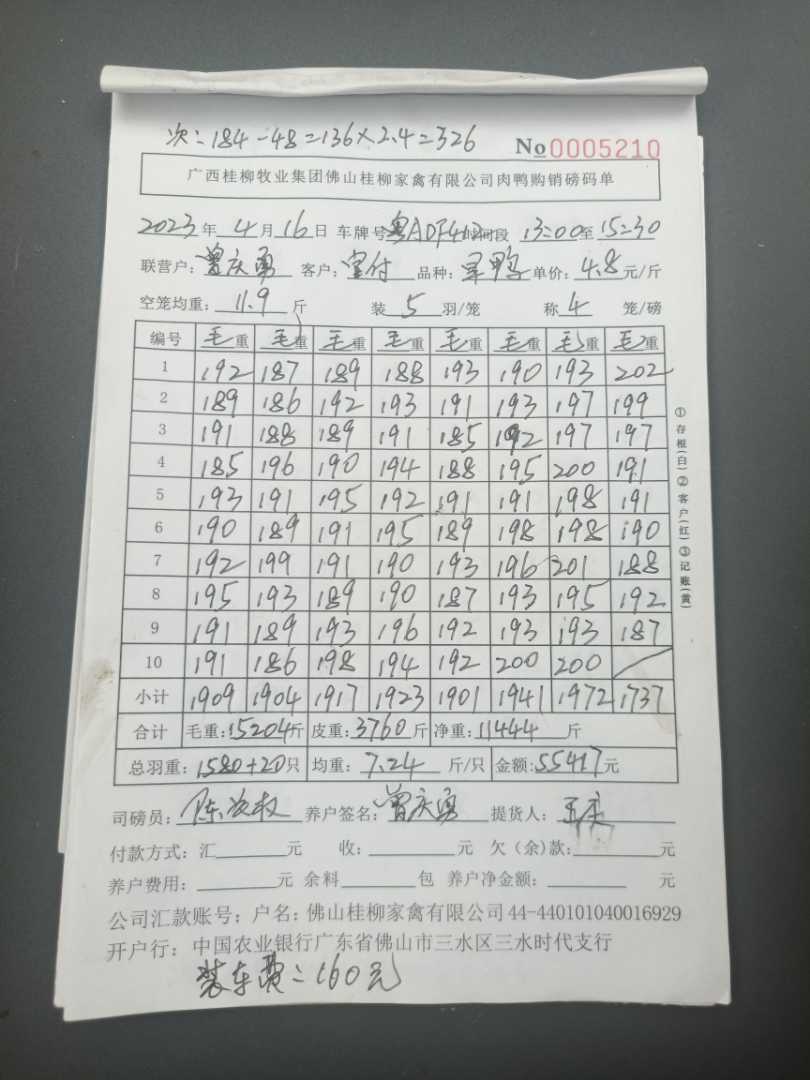 次:184-48=136×2.4=326
No 0005210
广西桂柳牧业集团佛山桂柳家禽有限公司肉鸭购销磅码单
2023年4月16日 车牌号粤ADF412时间段 13:00至15:30
联营户:曾庆勇 客户:宝付 品种: 鸭 单价:4.8元/斤
空笼均重:11.9斤 装5羽/笼 称4笼/磅
编号 毛重 毛重 毛重 毛重 毛重 毛重 毛重 毛重
1 192 187 189 188 193 190 193 202
2 189 186 192 193 191 193 197 199
3 191 188 189 191 185 192 197 197
4 185 196 190 194 188 195 200 191
5 193 191 195 192 191 191 198 191
6 190 189 191 195 189 198 198 190
7 192 199 191 190 193 196 201 188
8 195 193 189 190 187 193 195 192
9 191 189 193 196 192 193 193 187
10 191 186 198 194 192 200 200 /
小计 1909 1904 1917 1923 1901 1941 1972 1737
合计 毛重:15204斤 皮重:3760斤 净重:11444斤
总羽重:1580+20只 均重:7.24斤/只 金额:55417元
司磅员:陈 权 养户签名:曾庆勇 提货人:
付款方式:汇 元 收: 元 欠(余)款: 元
养户费用: 元 余料 包 养户净金额: 元
公司汇款账号:户名:佛山桂柳家禽有限公司44-440101040016929
开户行:中国农业银行广东省佛山市三水区三水时代支行
装车费:160元
①存根(白)②客户(红)③记账(黄)